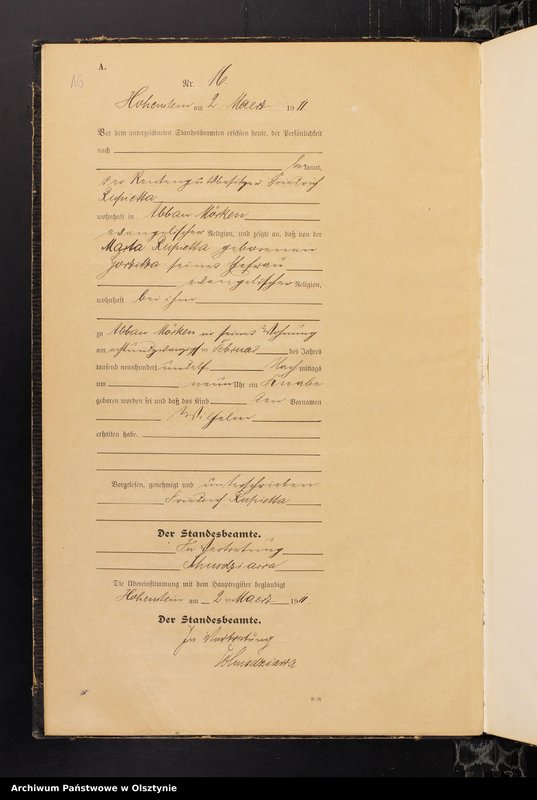 A.
16
Nr. 16
Hohenstein am 2. Maerz 1911
Vor dem unterzeichneten Standesbeamten erschien heute, der Persönlichkeit
nach
bekannt,
der Rentengutsbesitzer Friedrich
wohnhaft in Abbau Mörken
evangelischer Religion, und zeigte an, daß von der
Marta geborenen
seiner Ehefrau
evangelischer Religion,
wohnhaft bei ihm
zu Abbau Mörken in seiner Wohnung
am achtundzwanzigsten Februar des Jahres
tausend neunhundert undelf Nachmittags
um neun Uhr ein Knabe
geboren worden sei und daß das Kind den Vornamen
Wilhelm
erhalten habe.
Vorgelesen, genehmigt und unterschrieben
Friedrich
Der Standesbeamte.
In Vertretung
Die Übereinstimmung mit dem Hauptregister beglaubigt
Hohenstein am 2 ten Maerz 1911.
Der Standesbeamte.
In Vertretung
Archiwum Państwowe w Olsztynie